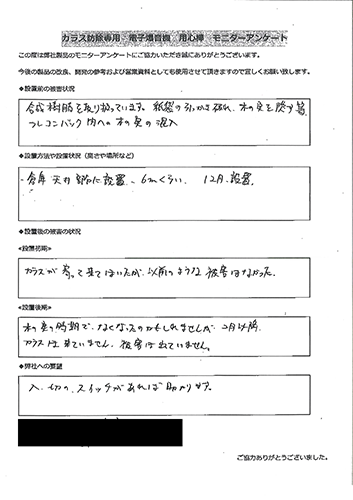 カラス防除専用・電子爆音機 用心棒 モニターアンケート
この度は弊社製品のモニターアンケートにご協力いただき誠にありがとうございます。
今後の製品の改良、開発の参考および営業資料としても使用させて頂きますので宜しくお願い致します。
◆設置前の被害状況
合成樹脂を取り扱っています。紙袋の引っかき破れ、木の実を
フレコンバック内への木の実の混入
◆設置方法や設置状況（高さや場所など）
倉庫 天井 部に設置 6mくらい 12月 設置
◆設置後の被害の状況
≪設置初期≫
カラスが寄って来てはいたが、以前のような被害はなかった。
≪設置後期≫
木の実の時期で、なくなったのかもしれませんが、2月以降
カラスは来ていません。被害は出ていません。
◆弊社への要望
入、切の、スイッチがあれば助かります。
ご協力ありがとうございました。